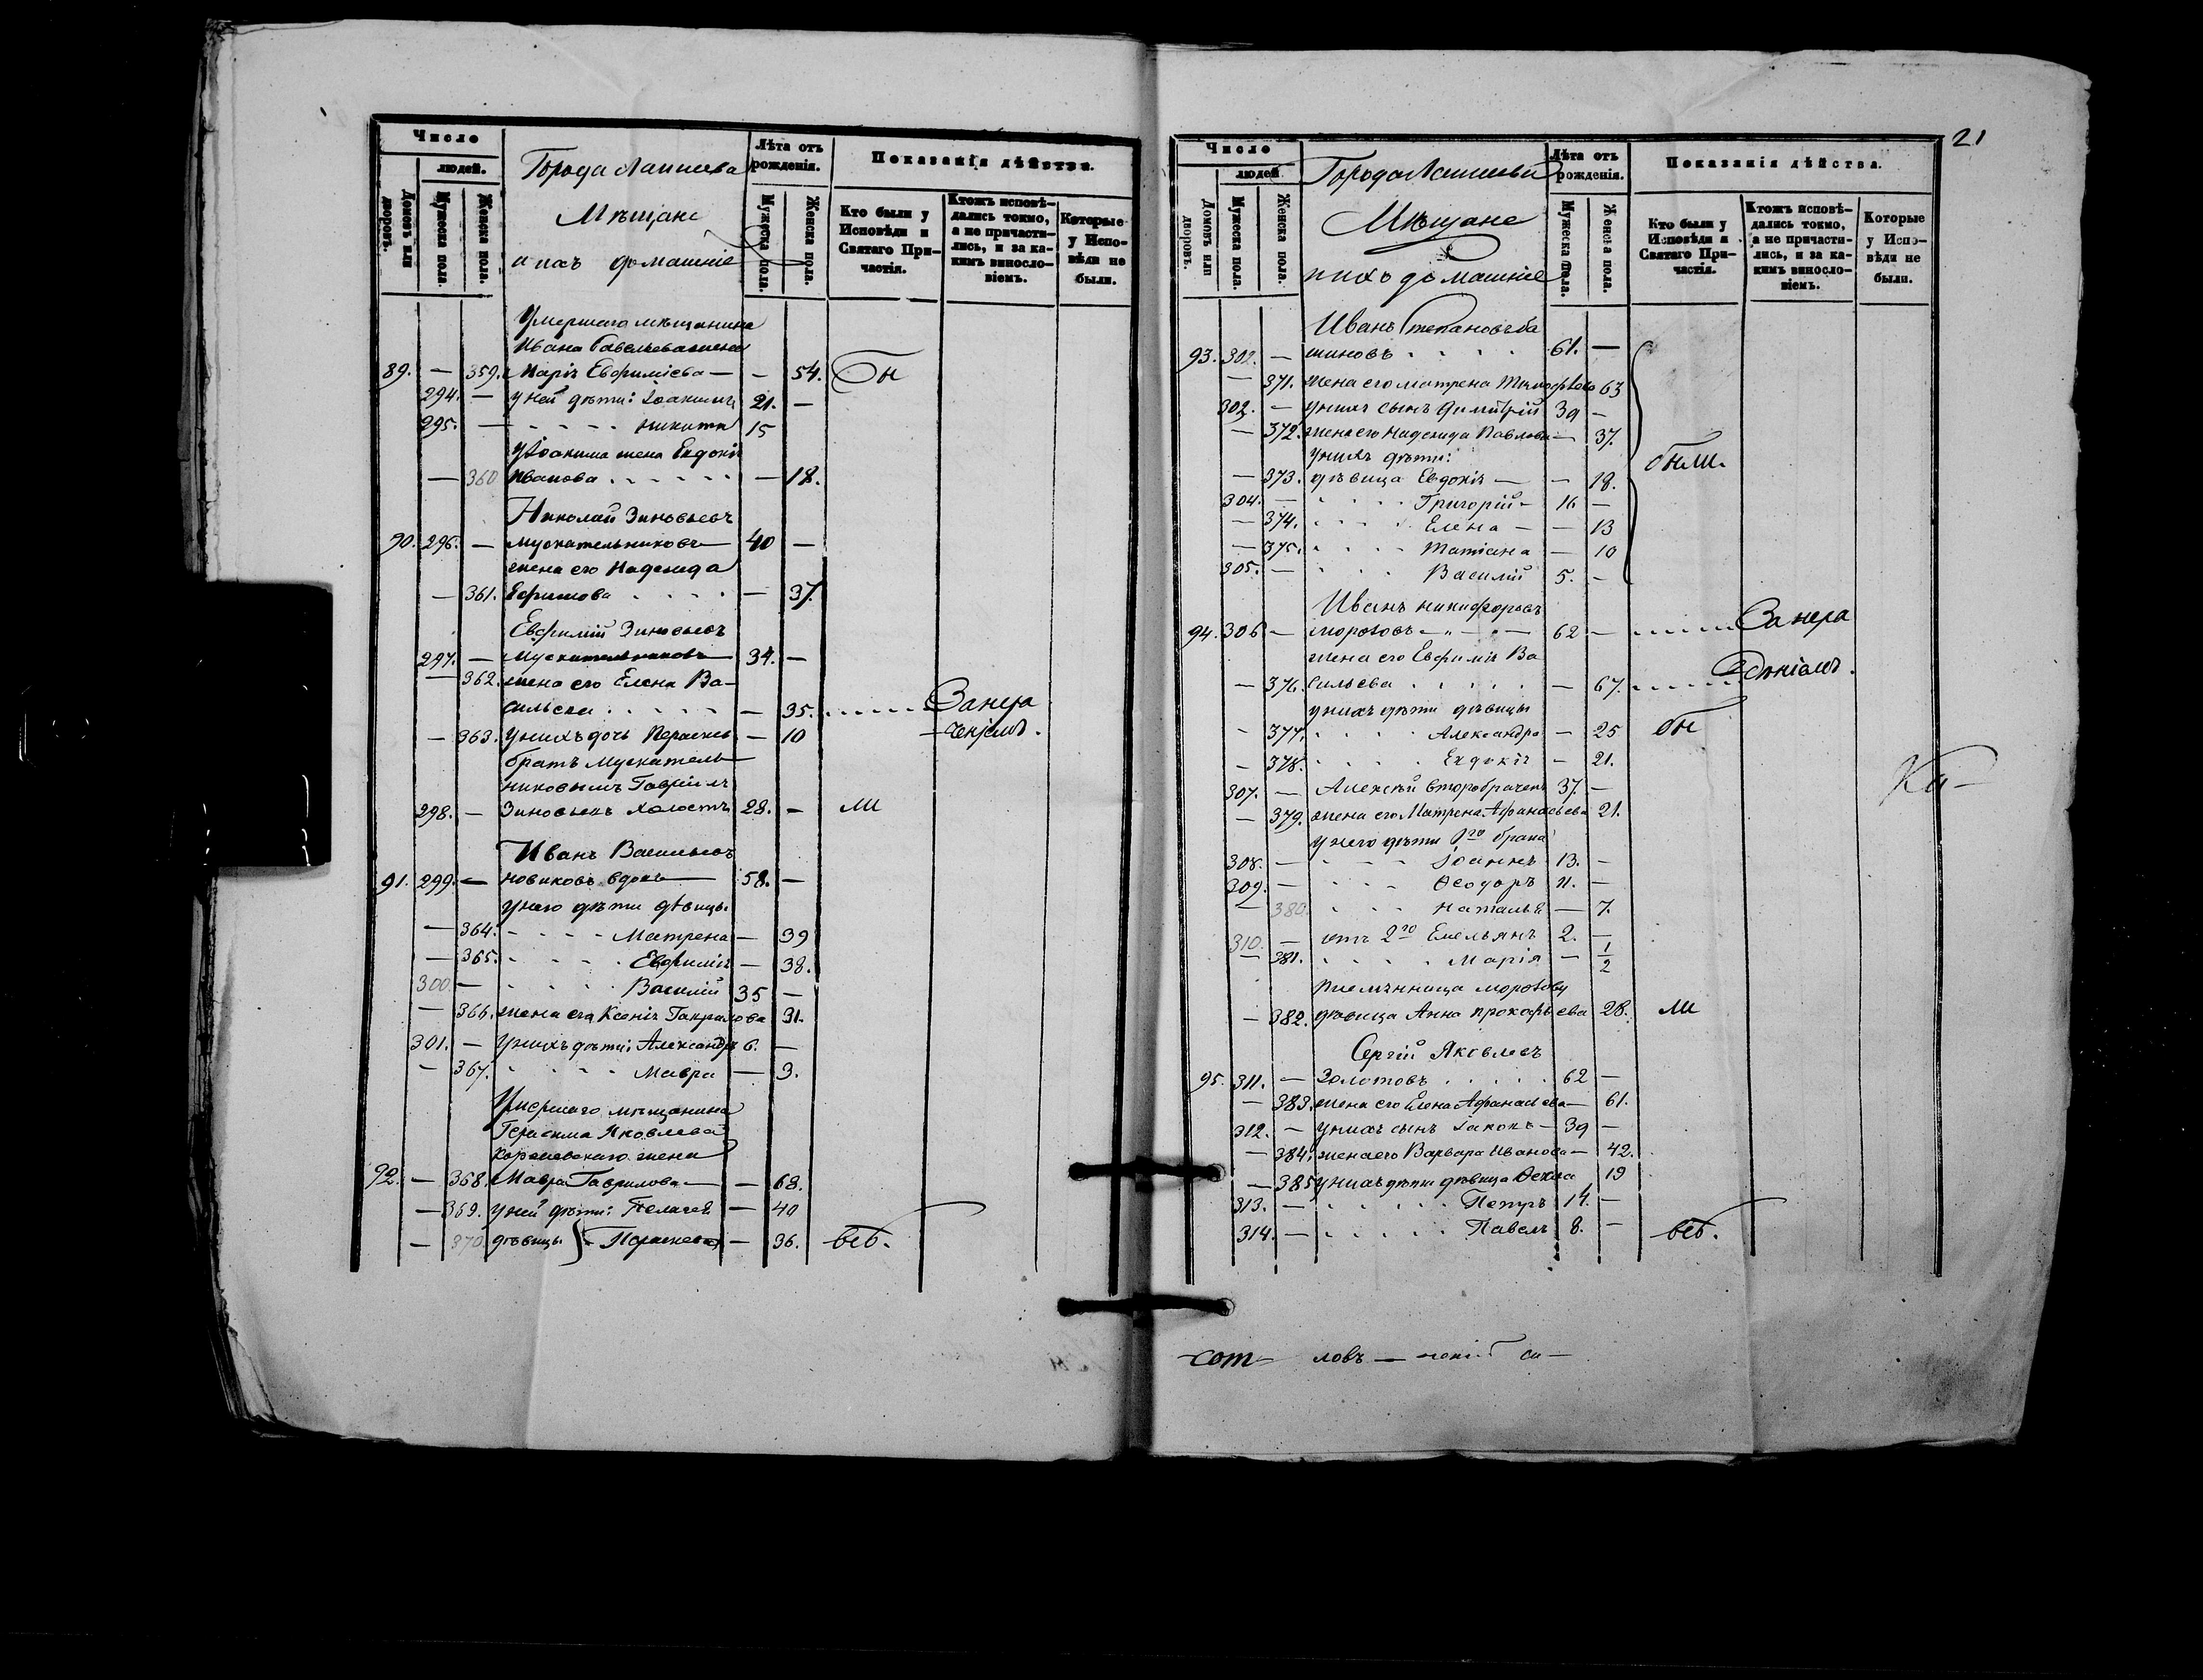 Число
людей.
Домовъ или дворовъ.
Мужеска пола.
Женска пола.
Города Лаишева
Мѣщане
и ихъ домашніе
Лѣта отъ рожденія.
Мужеска пола.
Женска пола.
Показанія дѣйства.
Кто были у Исповѣди и Святаго Причастія.
Ктожъ исповѣдались токмо, а не причастились, и за какимъ винословіемъ.
Которые у Исповѣди не были.
Умершаго мѣщанина
Ивана Савельева жена
89. — 359. Марія Евфиміева — — 54. Бы
294. — у ней дѣти: Іоакимъ 21. —
295. — Никита 15
у Іоакима жена Евдокія
— 360 Иванова — 18.
Николай Зиновьевъ
90. 296. — Мускательниковъ 40 —
жена его Надежда
— 361. Ефимова — 37.
Евфимій Зиновьевъ
297. — Мускательниковъ 34. —
— 362. жена его Елена Ва-
сильева — 35. Занера
— 363. у нихъ дочь Параскева — 10 ченіемъ.
братъ Мускатель-
никовымъ Гавріилъ
298. — Зиновьевъ холостъ 28. — ли
Иванъ Васильевъ
91. 299. — Новиковъ вдовъ 58. —
у него дѣти дѣвицы
— 364. Матрена — 39
— 365. Евфимія — 38.
300. — Василій 35 —
— 366. жена его Ксенія Гаврилова 31.
301. — у нихъ дѣти: Александръ 6. —
— 367. Мавра — 3.
Умершаго мѣщанина
Герасима Яковлева
жена
92. — 368. Мавра Гаврилова — — 68.
— 369. у ней дѣти: Пелагея — 40
— 370. дѣвицы Параскева — 36. всѣ.
21
Число
людей
Домовъ или дворовъ.
Мужеска пола.
Женска пола.
Города Лаишева
Мѣщане
и ихъ домашніе
Лѣта отъ рожденія.
Мужеска пола.
Женска пола.
Показанія дѣйства.
Кто были у Исповѣди и Святаго Причастія.
Ктожъ исповѣдались токмо, а не причастились, и за какимъ винословіемъ.
Которые у Исповѣди не были.
Иванъ Степановъ Ба
93. 302. — шиновъ 61. —
— 371. жена его Матрена Тимофѣева 63
302. — у нихъ сынъ Димитрій 39 —
— 372. жена его Надежда Павлова — 37.
у нихъ дѣти: были.
— 373. дѣвица Евдокія — — 18.
304. — Григорій — 16 —
— 374. Елена — — 13
— 375. Татіана — 10
305. — Василій 5. —
Иванъ Никифоровъ
94. 306 — Морозовъ 62 — Занера
жена его Евфимія Ва
— 376. сильева — 67. дѣніемъ.
у нихъ дѣти дѣвицы
— 377. Александра — 25 бы
— 378. Евдокія — 21.
307. — Алексѣй второбрачен 37. —
— 379. жена его Матрена Афанасьева 21.
у него дѣти 1го брака
308. — Іоаннъ 13. —
309. — Ѳеодоръ 11. —
— 380. Наталья — 7.
310. — отъ 2го Емельянъ 2. —
— 381. Марія — 1/2
Морозову
— 382. дѣвица Анна Прохорьева 28. ли
Сергій Яковлевъ
95. 311. — Золотовъ 62 —
— 383. жена его Елена Афанасьева — 61.
312. — у нихъ сынъ Іаковъ — 39 —
— 384. жена его Варвара Иванова — 42.
— 385 у нихъ дѣти дѣвица Ѳекла 19
313. — Петръ 14. —
314. — Павелъ 8. — всѣ.
Ка-
сот- ловъ —